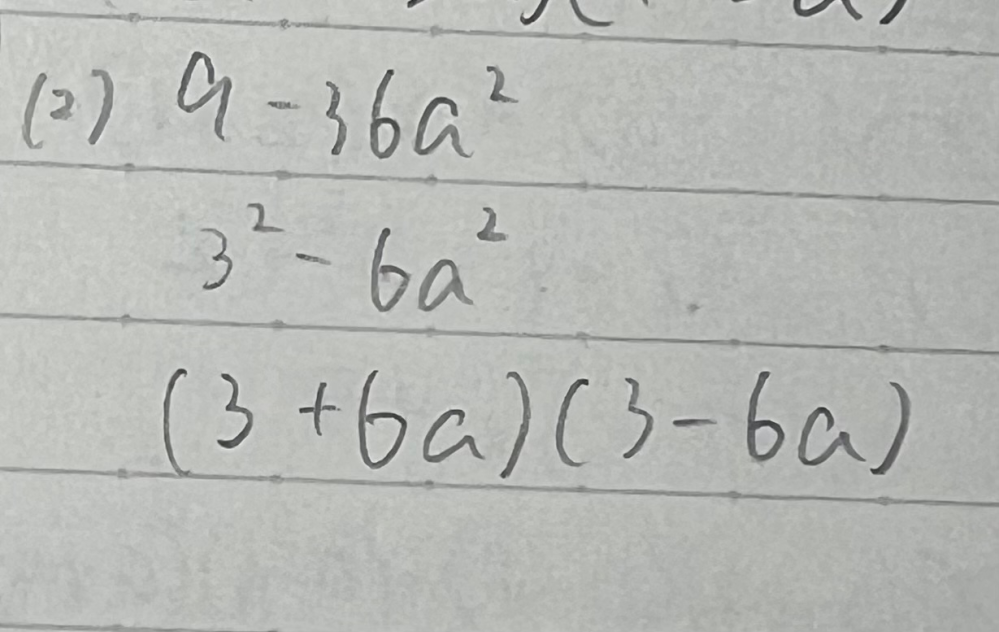 (2) 9-36a²
3²-6a²
(3+6a)(3-6a)